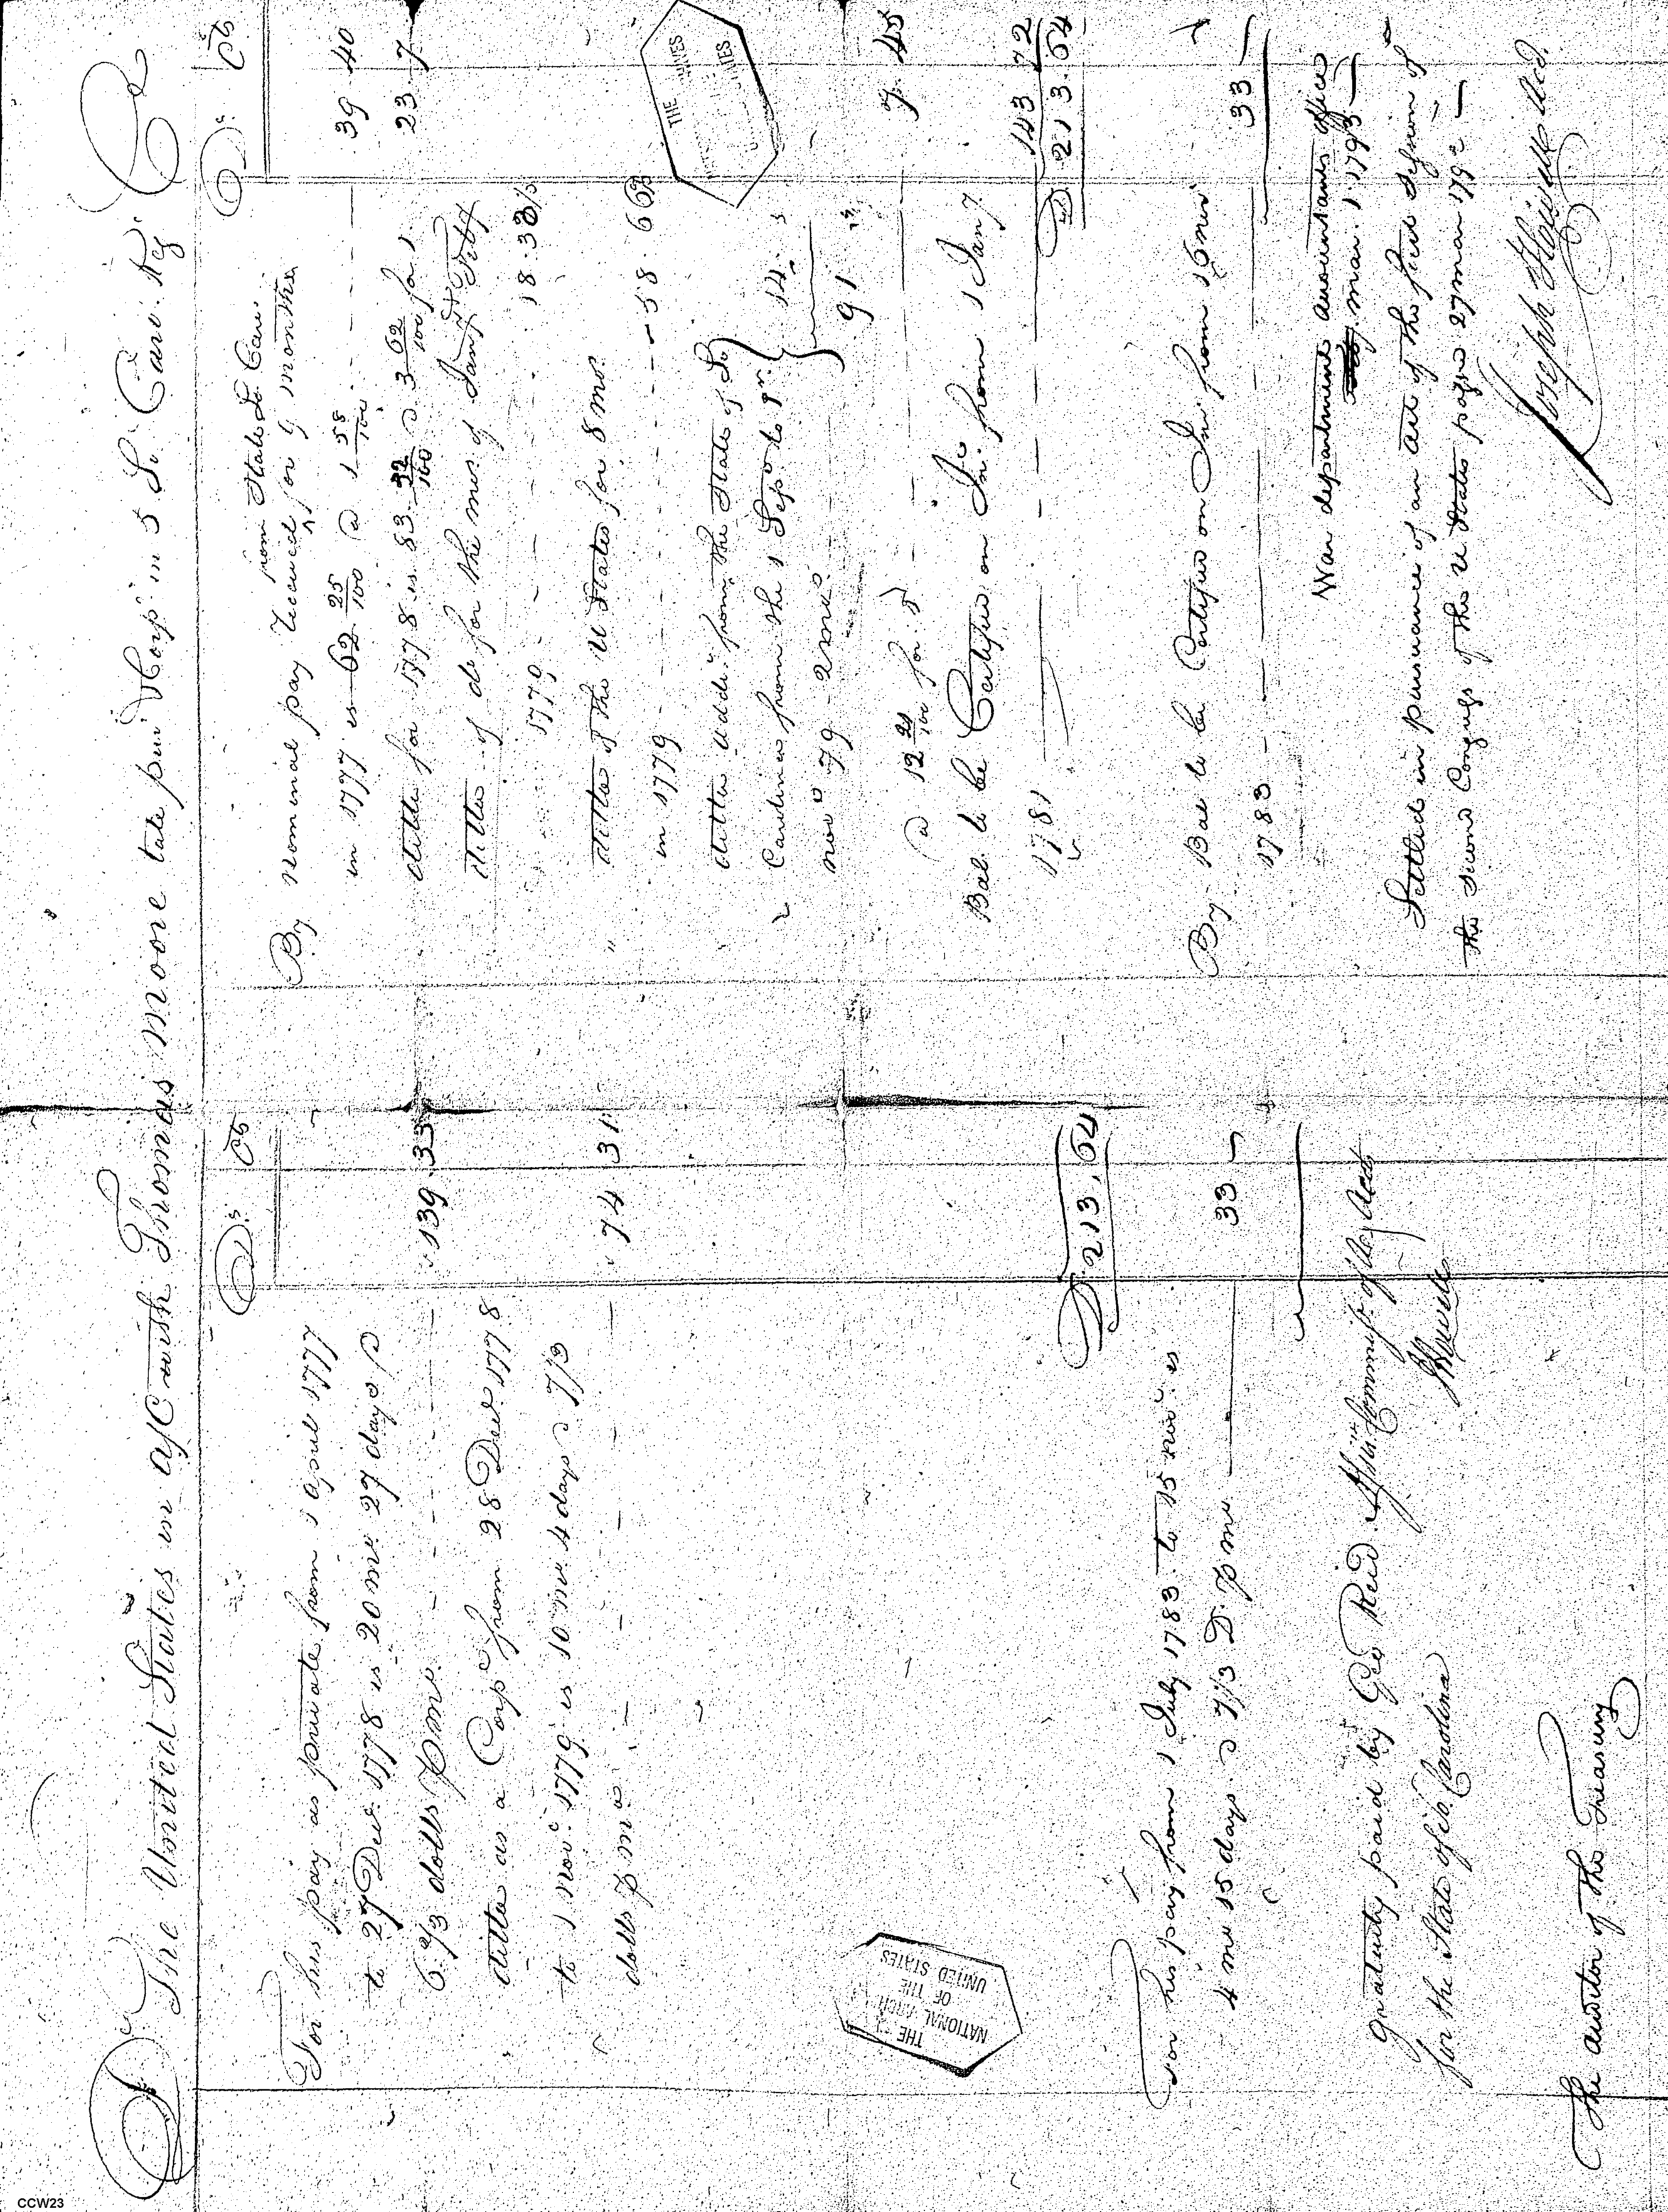 Dr The United States in a/c with Thomas Moore late priv. & Corp. in 5 So. Caro. Reg. Cr
Ds. Cts
For his pay as private from 1 april 1777
to 27 Decr. 1778 is 20 mo. 27 days @
6 2/3 dolls p mo. 139.33
ditto as a Corpl from 28 Decr. 1778
to 1 novr. 1779 is 10 mo. 4 days @ 7 1/3
dolls p mo. 74 31
D. 213.64
For his pay from 1 July 1783 to 15 novr. is
4 mo 15 days @ 7 1/3 D. p mo 33 —
gratuity paid by Geo Reid Assist. Commissr. of Army Accts
for the State of So. Carolina
J Howell
The auditor of the Treasury
THE
NATIONAL ARCHI
OF THE
UNITED STATES
Ds. Cts
from State So Caro.
By nominal pay received for 9 months
in 1777 is 62 25/100 @ 1 58/100 39 40
ditto for 1778 is 83 @ 3 62/100 for 1 23 7
ditto of do for the mos of Jany & Feby
1779 18.33 1/3
ditto of the U States for 8 mo.
in 1779 58.66 2/3
ditto addl. from the State of So.
Carolina from the 1 Sepr to 1st. 14.
novr 79 2 mo. 91
@ 12 21/100 for 1 7.45
Bal. to be Certified on Int. from 1 Jany.
1781 143 72
D. 213.64
By Bal to be Certified on Int. from 16 novr
1783 33 —
War department accountants office
mar. 1. 1793
Settled in pursuance of an act of the first Session of
the second Congress of the U States passed 27 mar 1792
Joseph Howell Acct.
THE
CCW23